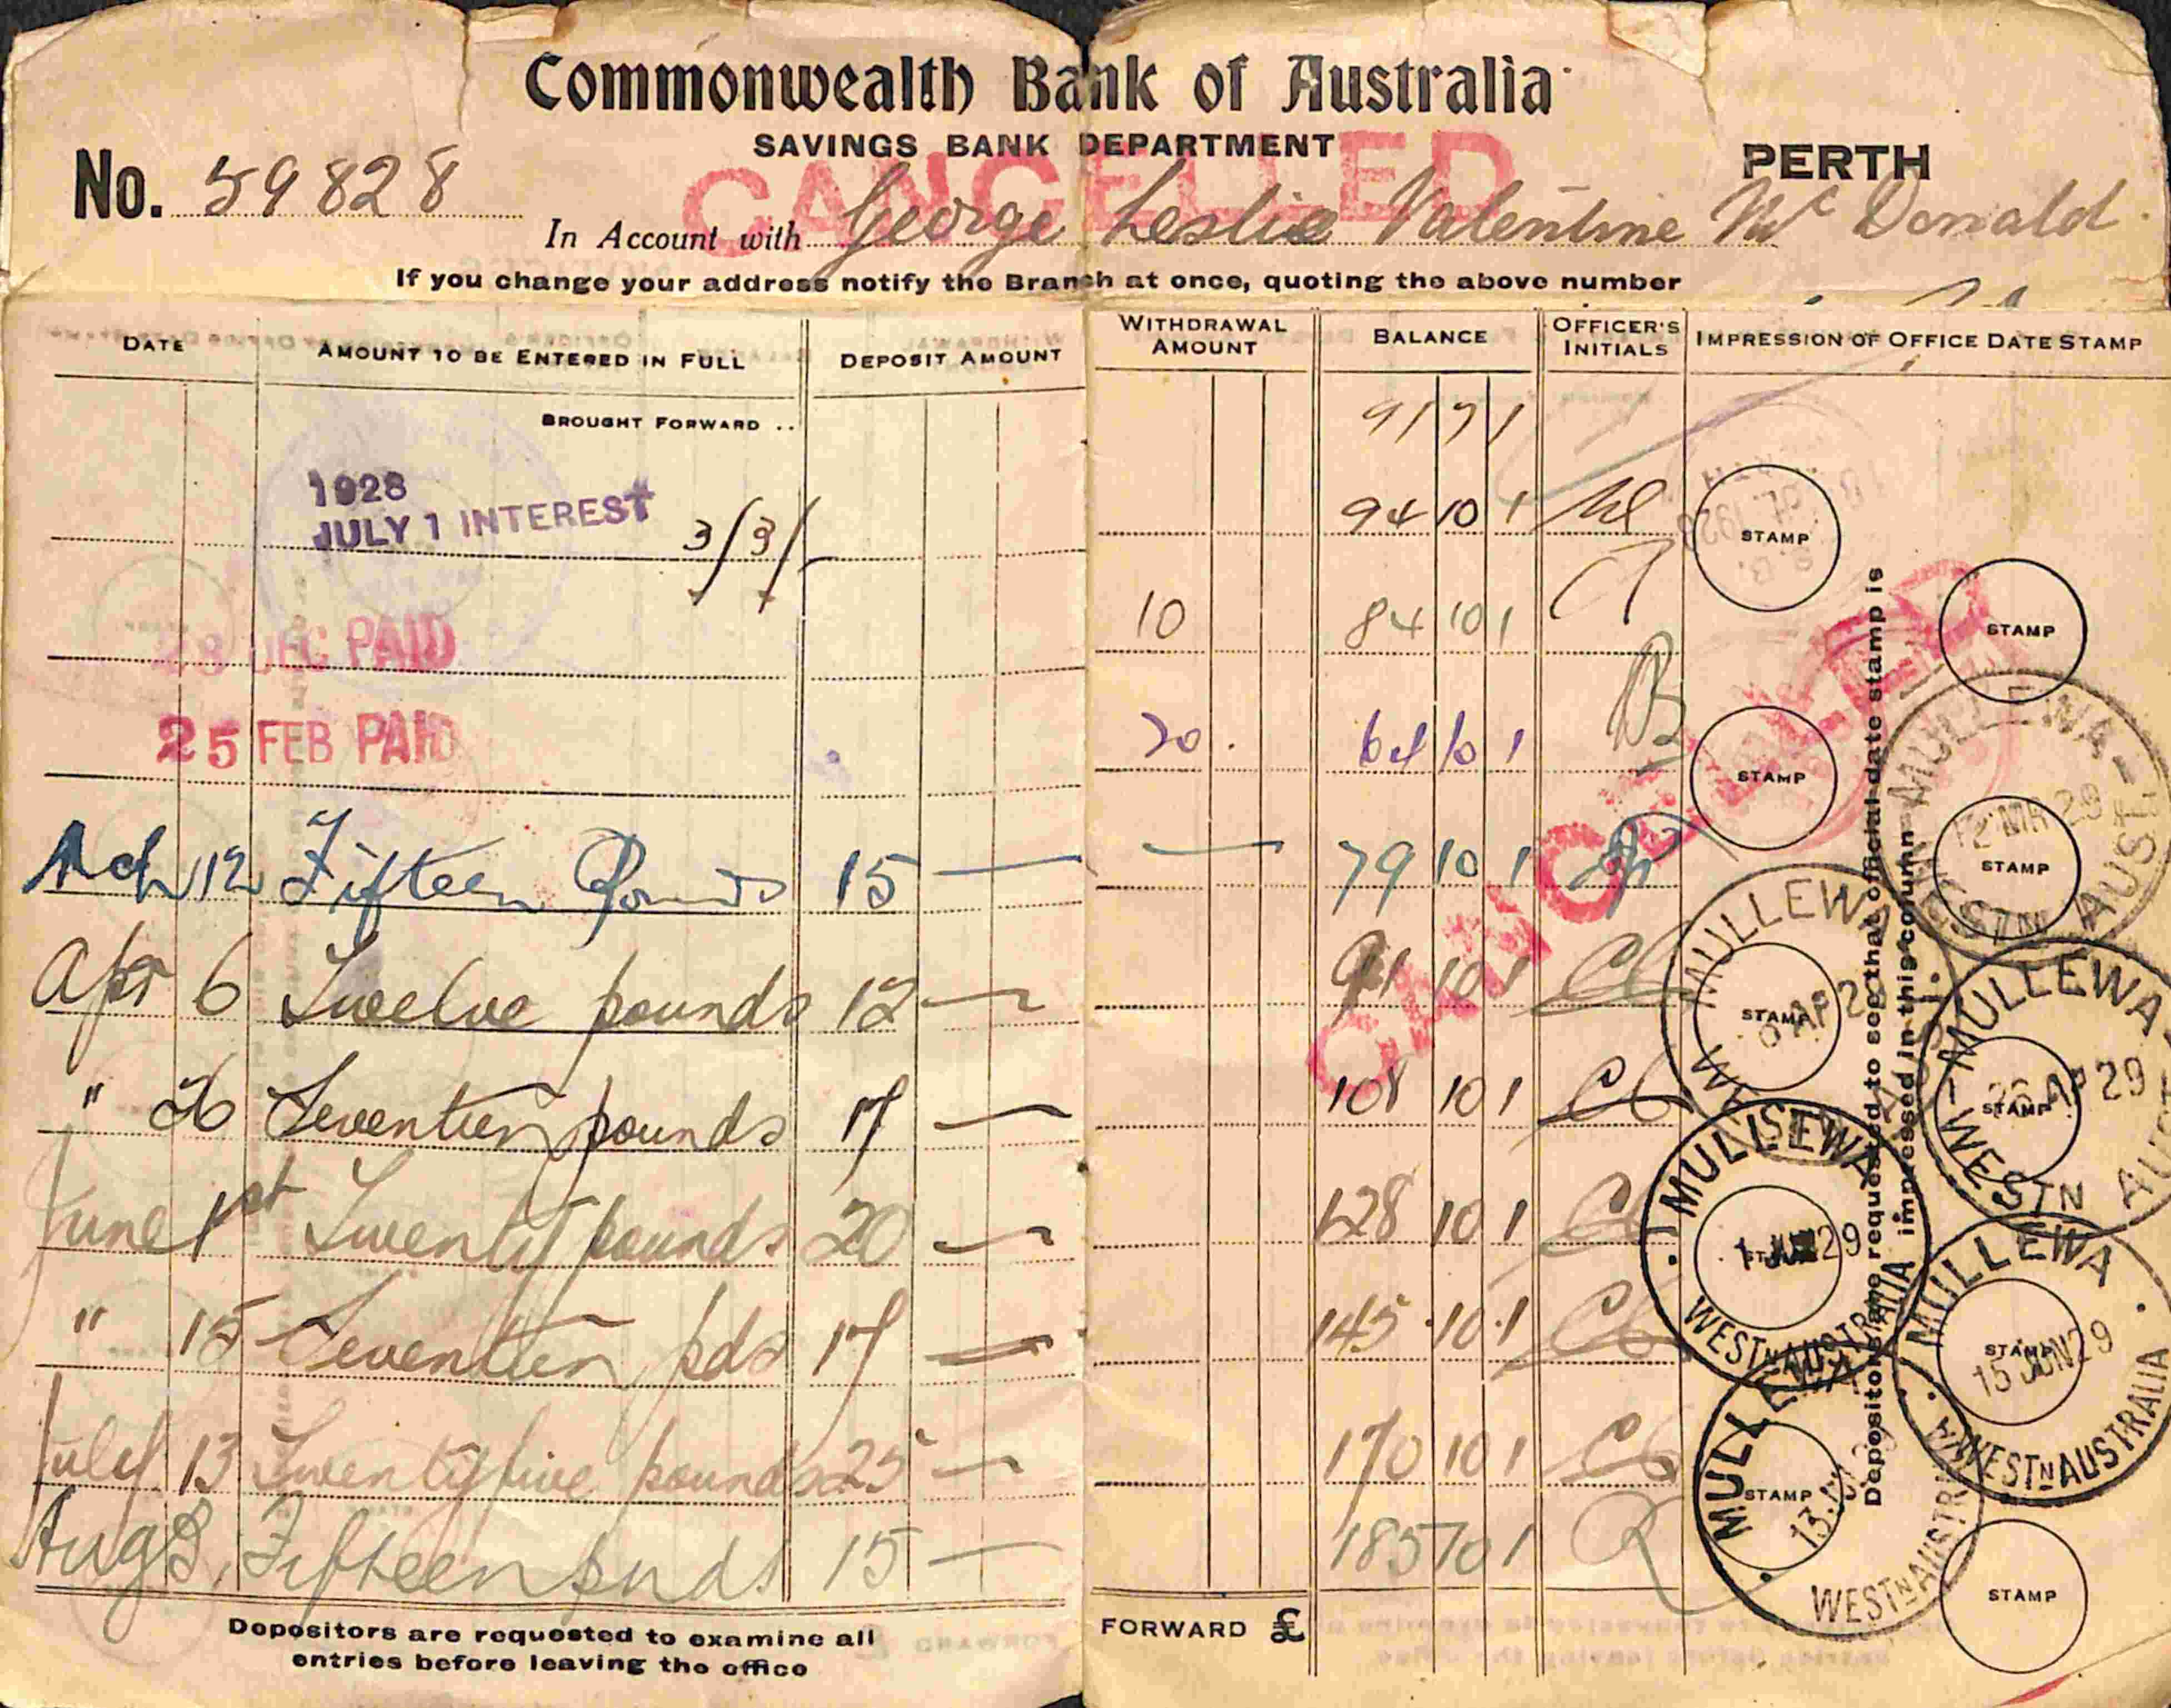 Commonwealth Bank of Australia
SAVINGS BANK DEPARTMENT
CANCELLED
PERTH
No. 59828
In Account with George Leslie Valentine Mc Donald
If you change your address notify the Branch at once, quoting the above number
DATE AMOUNT TO BE ENTERED IN FULL DEPOSIT AMOUNT WITHDRAWAL AMOUNT BALANCE OFFICER'S INITIALS IMPRESSION OF OFFICE DATE STAMP
BROUGHT FORWARD .. 91 7 1
1928
JULY 1 INTEREST 3/3/- 94 10 1
28 DEC PAID 10 84 10 1
25 FEB PAID 20 . 64 10 1
Mch 12 Fifteen Pounds 15 — — 79 10 1
Apr 6 Twelve pounds 12 — 91 10 1 CC
" 26 Seventeen pounds 17 — 108 10 1 CC
June 1st Twenty pounds 20 — 128 10 1 CC
" 15 Seventeen pds 17 — 145 10 1 CC
July 13 Twentyfive pounds 25 — 170 10 1 CC
Aug 8, Fifteen pnds 15 — 185 10 1
FORWARD £
Depositors are requested to examine all
entries before leaving the office
CANCELLED
Depositors are requested to see that official date stamp is
impressed in this column
STAMP
STAMP
STAMP
STAMP
STAMP
STAMP
STAMP
STAMP
STAMP
STAMP
MULLEWA - WESTN AUST 12 MR 29
MULLEWA 6 AP 29
MULLEWA - WESTN AUST 26 AP 29
MULLEWA WESTN AUSTRALIA 1 JUN 29
MULLEWA WESTN AUSTRALIA 15 JUN 29
MULLEWA WESTN AUSTRALIA 13